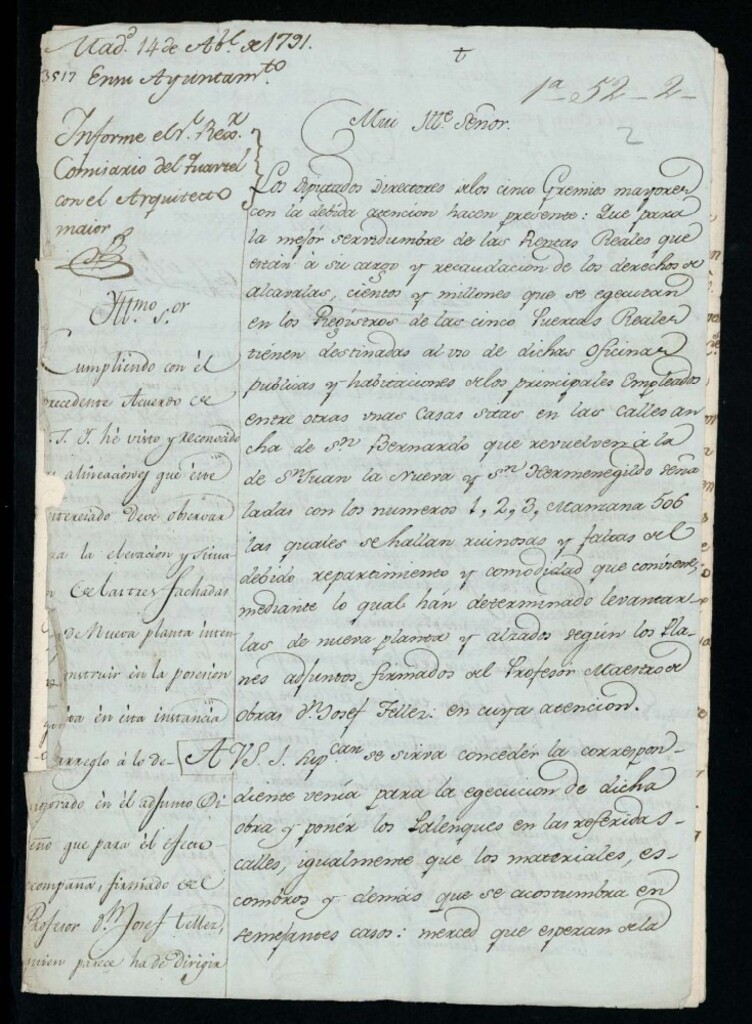 Mad.d 14 de Ab.l de 1791.
En su Ayuntam.to
Informe el s.r Rex.r
Comisario del Quartel
con el Arquitecto
maior
1a - 52 - 2 -
2
Mui Ille Señor.
Los Diputados Directores de los cinco Gremios mayores
con la debida atencion hacen presente: Que para
la mejor servidumbre de las Rentas Reales que
estan à su cargo y recaudacion de los derechos de
alcavalas, cientos y millones que se egecutan
en los Registros de las cinco Puertas Reales
tienen destinadas al uso de dichas oficinas
publicas y habitaciones de los principales Empleados
entre otras unas Casas sitas en las calles an
cha de S.n Bernardo que revuelven à la
de S.n Juan la Nueva y S.n Hermenegildo seña
ladas con los numeros 1, 2, 3, Manzana 506
las quales se hallan ruinosas y faltas del
debido repartimiento y comodidad que conviene,
mediante lo qual hán determinado levantar
las de nueva planta y alzados según los Pla
nes adjuntos firmados del Profesor Maestro de
obras d.n Josef Tellez: en cuya atencion.
A VS. I. Sup.can se sirva concedér la correspon-
diente venia para la egecucion de dicha
obra y ponér los Palenques en las referidas
calles, igualmente que los materiales, es-
combros y demás que se acostumbra en
semejantes casos: merced que esperan de la
Yll.mo S.or
Cumpliendo con él
precedente Acuerdo de
V.S.I. hé visto y reconocido
alineaciones que este
interesado Deve observar
la elevacion y situa-
de las tres fachadas
de Nueva planta inten-
construir en la posesion
en esta instancia
arreglo à lo de-
en él adjunto Di
seño que para él efecto
acompaña, firmado de el
Profesor d.n Josef Tellez,
quien parece ha de Dirigir